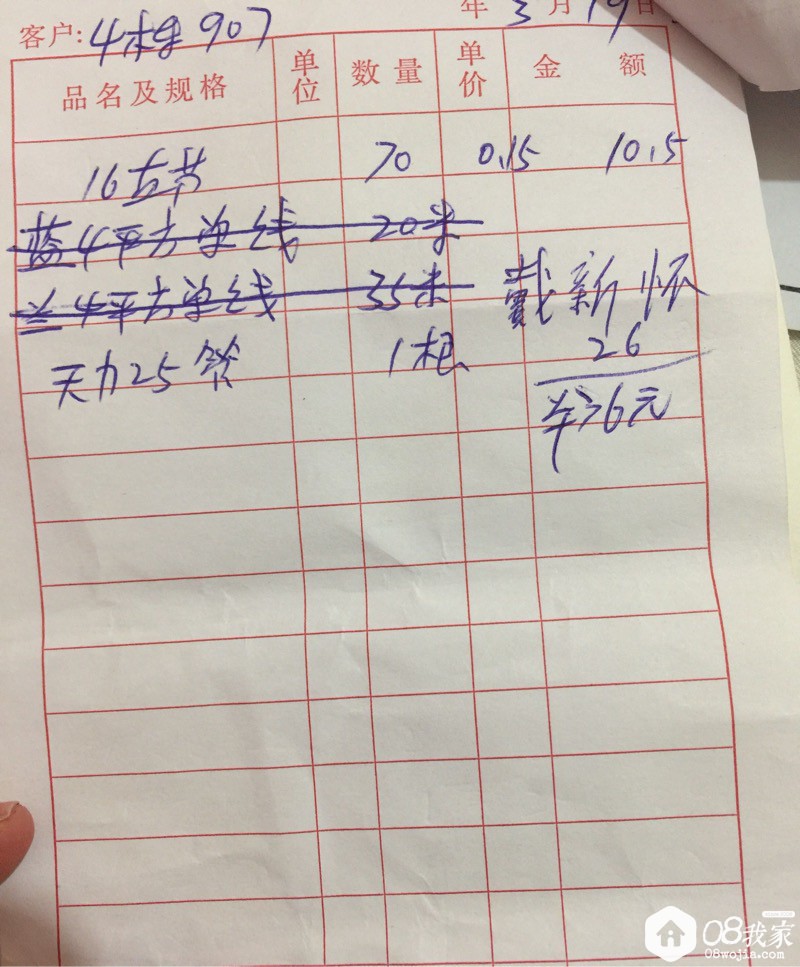 年 3 月 19 日
客户: 4栋 907
品名及规格 单位 数量 单价 金 额
16古节 70 0.15 10.5
蓝4平方单线 20米
兰4平方单线 35米
戴新怀
天力25管 1根 26
36元
08我家
08wojia.com